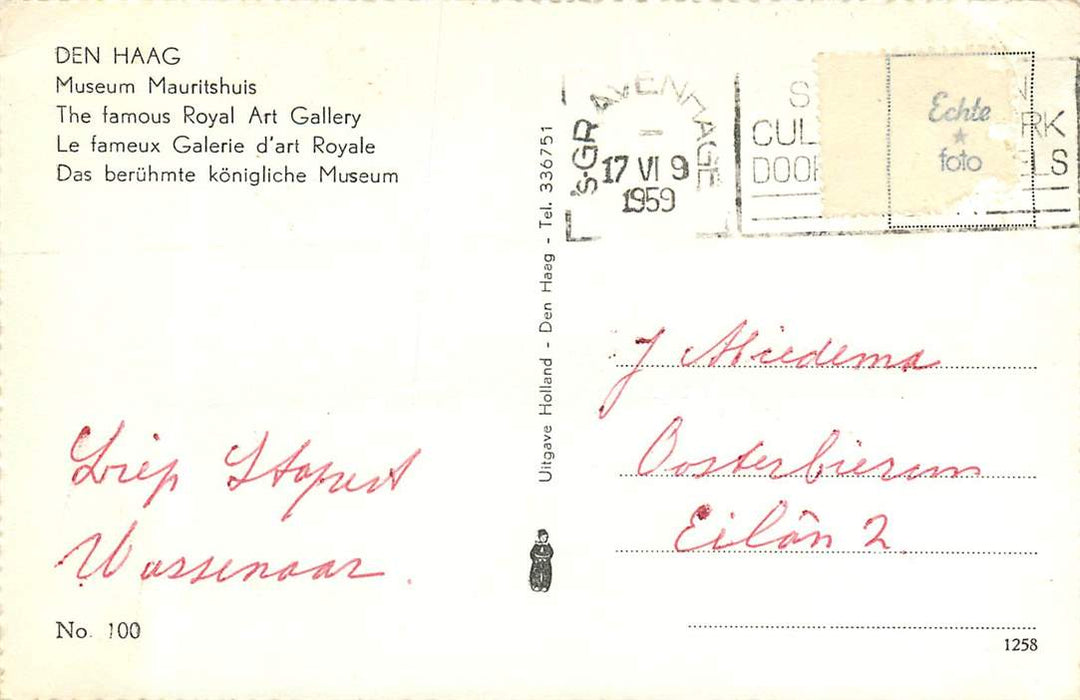 DEN HAAG
Museum Mauritshuis
The famous Royal Art Gallery
Le fameux Galerie d'art Royale
Das berühmte königliche Museum
's-GRAVENHAGE
17 VI 9
1959
Echte
foto
Uitgave Holland - Den Haag - Tel. 336751
J Miedema
Oosterbierum
Eilân 2
Wassenaar.
No. 100
1258